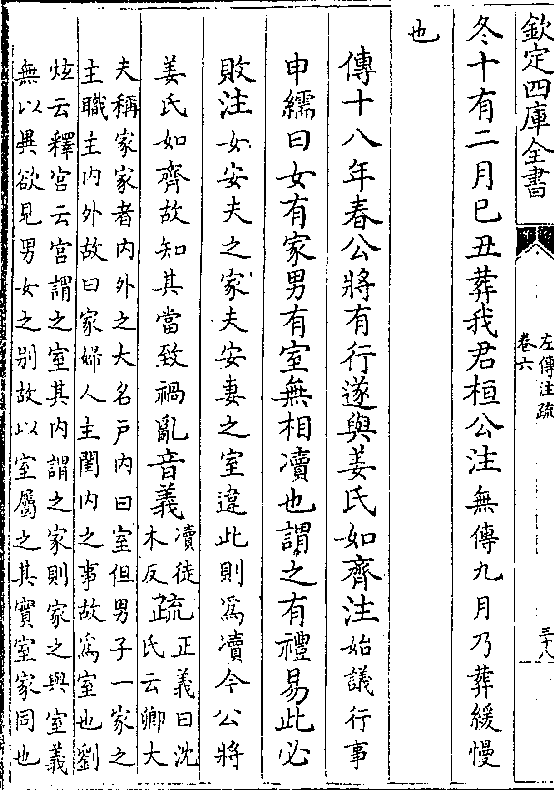 欽定四庫全書
左傳注疏
卷六
三十八
冬十有二月己丑葬我君桓公注無傳九月乃葬緩慢
也
傳十八年春公將有行遂與姜氏如齊注始議行事
申繻曰女有家男有室無相瀆也謂之有禮易此必
敗注女安夫之家夫安妻之室違此則為瀆今公將
姜氏如齊故知其當致禍亂音義瀆徒
木反疏正義曰沈
氏云卿大
夫稱家家者内外之大名戸内曰室但男子一家之
主職主内外故曰家婦人主閨内之事故為室也劉
炫云釋宮云宮謂之室其内謂之家則家之與室義
無以異欲見男女之别故以室屬之其實室家同也